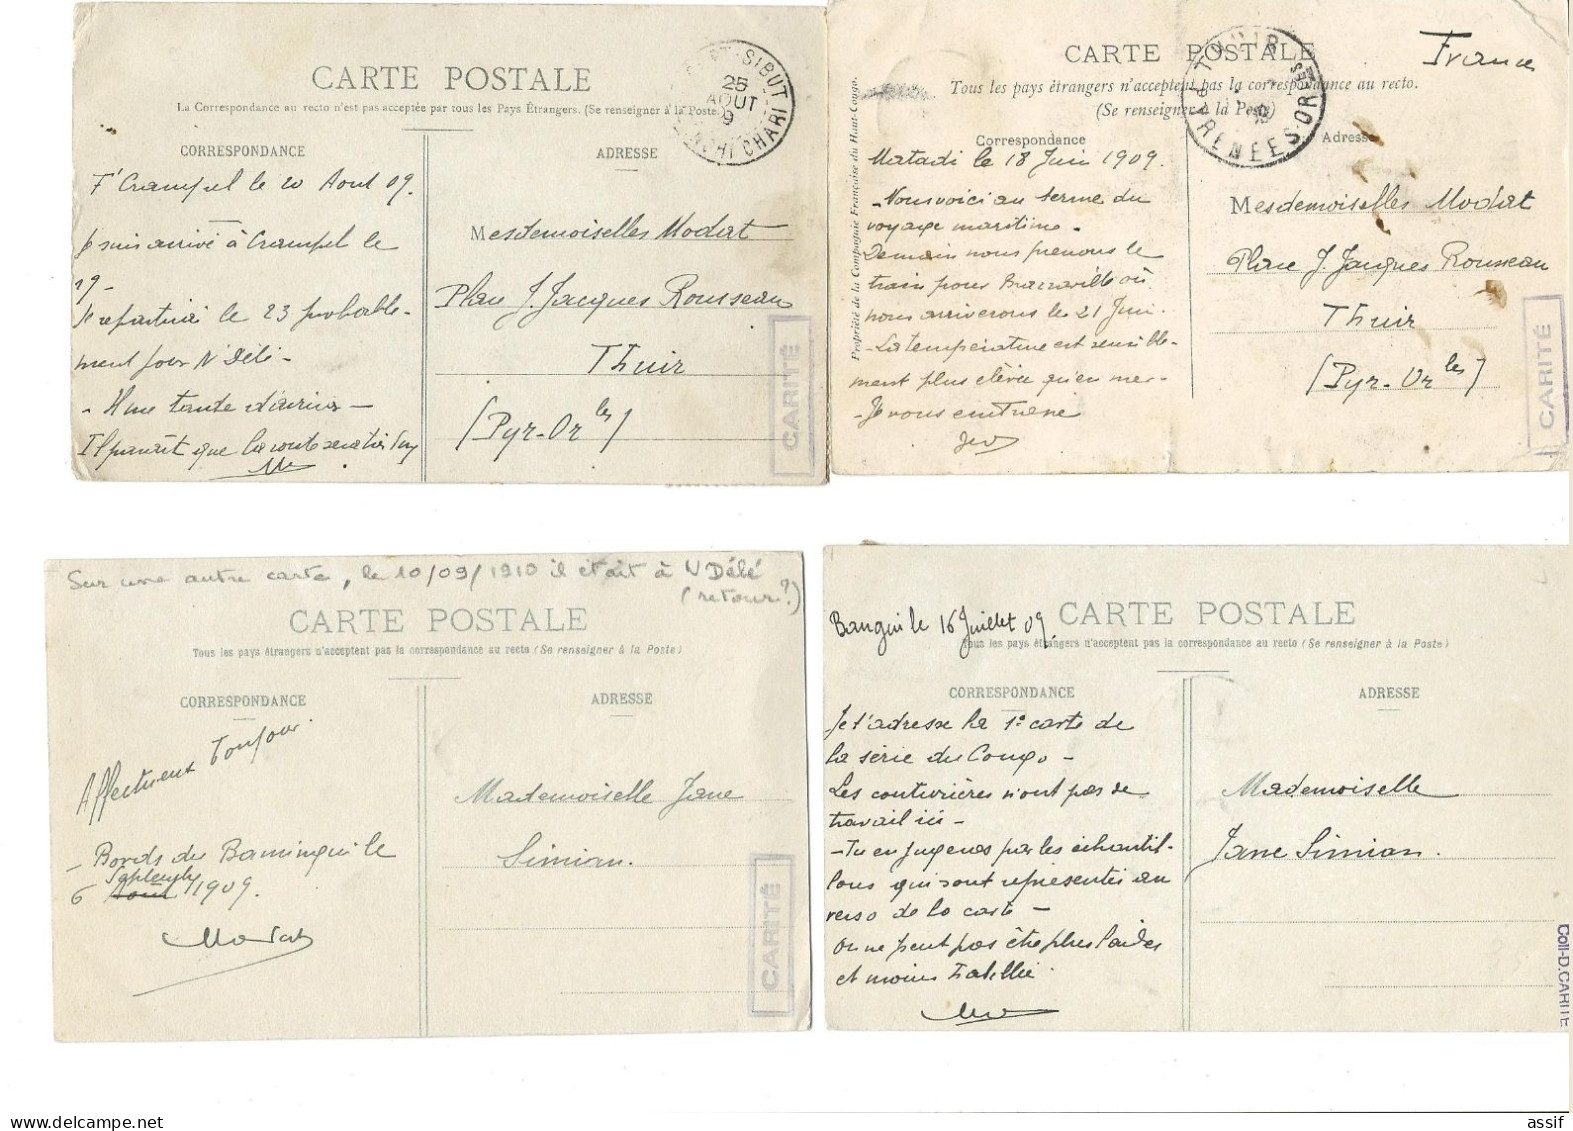 CARTE POSTALE
La Correspondance au recto n'est pas acceptée par tous les Pays Étrangers. (Se renseigner à la Poste.)
CORRESPONDANCE
ADRESSE
SIBUT
25
AOUT
9
CHARI
F' Crampel le 20 Aout 09.
Je suis arrivé à Crampel le
19 -
Je repartirai le 23 probable-
ment pour N'Délé -
Il parait que la route
Mesdemoiselles Modat
Place J. Jacques Rousseau
Thuir
(Pyr-Or les)
CARITÉ
CARTE POSTALE
France
Tous les pays étrangers n'acceptent pas la correspondance au recto.
(Se renseigner à la Poste)
Correspondance
Adresse
Propriété de la Compagnie Française du Haut-Congo.
THUIR
PYRENEES ORles
Matadi le 18 Juin 1909.
- Nous voici au terme du
voyage maritime -
Demain nous prenons le
train pour Brazzaville où
nous arriverons le 21 Juin.
- La température est sensible-
ment plus élevée qu'en mer -
- Je vous
Mesdemoiselles Modat
Place J. Jacques Rousseau
Thuir
(Pyr-Or les)
CARITÉ
Sur une autre carte, le 10/09/1910 il était à N'Délé
(retour?)
CARTE POSTALE
Tous les pays étrangers n'acceptent pas la correspondance au recto (Se renseigner à la Poste)
CORRESPONDANCE
ADRESSE
Affectueux Toujours
- Bords du Bamingui le
6 Septembre 1909.
Modat
Mademoiselle Jane
Simian.
CARITÉ
Bangui le 16 Juillet 09.
CARTE POSTALE
Tous les pays étrangers n'acceptent pas la correspondance au recto (Se renseigner à la Poste)
CORRESPONDANCE
ADRESSE
Je t'adresse la 1e carte de
la série du Congo -
Les couturières n'ont pas de
travail ici -
- Tu en jugeras par les échantil-
lons qui sont représentés au
verso de la carte -
On ne peut pas être plus laides
et moins
Mademoiselle
Jane Simian.
Coll-D.CARITE
assif